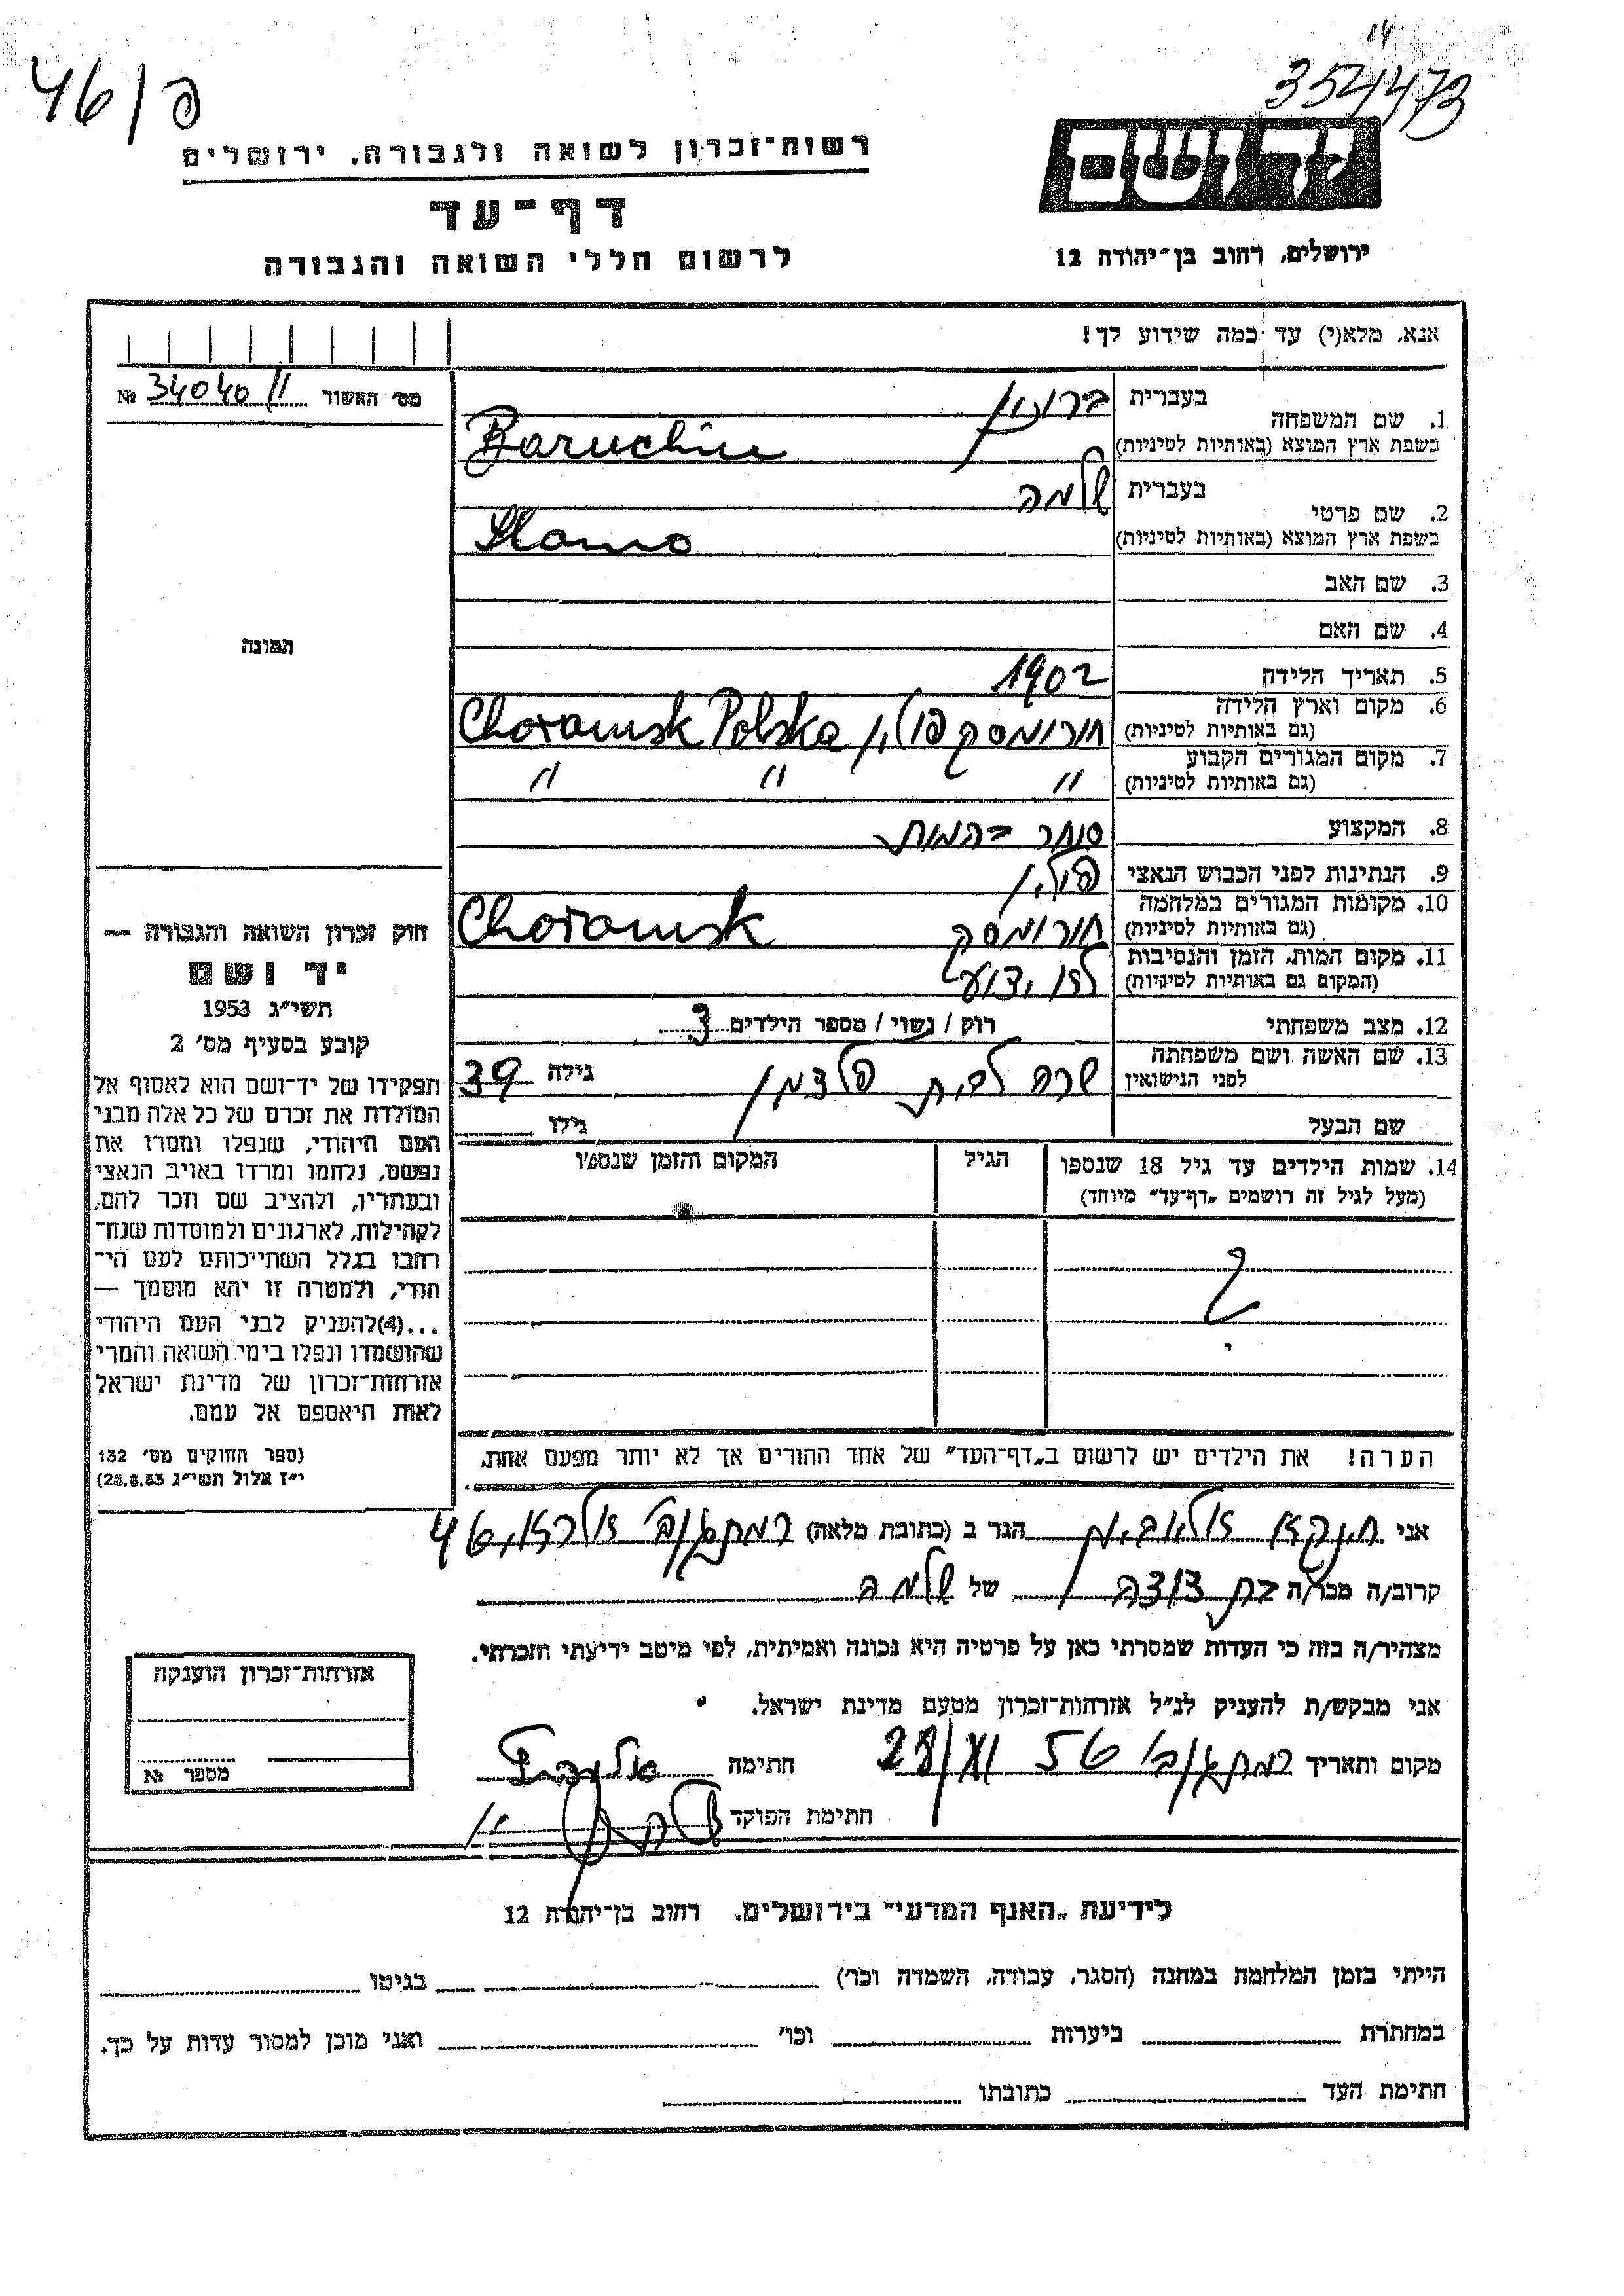 14
354473
46/פ
ידושם
רשות־זכרון לשואה ולגבורה, ירושלים
דף־עד
לרשום חללי השואה והגבורה
ירושלים, רחוב בן־יהודה 12
אנא, מלא(י) עד כמה שידוע לך!
מס׳ האשור 34040/11 №
תמונה
1. שם המשפחה
בעברית ברוכין
בשפת ארץ המוצא (באותיות לטיניות) Baruchin
2. שם פרטי
בעברית שלמה
בשפת ארץ המוצא (באותיות לטיניות) Slamo
3. שם האב
4. שם האם
5. תאריך הלידה 1902
6. מקום וארץ הלידה
(גם באותיות לטיניות) חורומסק פולין Choramsk Polska
7. מקום המגורים הקבוע
(גם באותיות לטיניות) " " "
8. המקצוע סוחר בהמות
9. הנתינות לפני הכבוש הנאצי פולין
10. מקומות המגורים במלחמה
(גם באותיות לטיניות) חורומסק Choramsk
11. מקום המות, הזמן והנסיבות
(המקום גם באותיות לטיניות) לא ידוע
12. מצב משפחתי רוק / נשוי / מספר הילדים 3
13. שם האשה ושם משפחתה
לפני הנישואין שרה לבית פלדמן גילה 39
שם הבעל גילו
14. שמות הילדים עד גיל 18 שנספו הגיל המקום והזמן שנספו
(מעל לגיל זה רושמים „דף־עד” מיוחד)
?
הערה! את הילדים יש לרשום ב„דף־העד” של אחד ההורים אך לא יותר מפעם אחת.
חוק זכרון השואה והגבורה —
יד ושם
תשי״ג 1953
קובע בסעיף מס׳ 2
תפקידו של יד־ושם הוא לאסוף אל
המולדת את זכרם של כל אלה מבני
העם היהודי, שנפלו ומסרו את
נפשם, נלחמו ומרדו באויב הנאצי
ובעוזריו, ולהציב שם וזכר להם,
לקהילות, לארגונים ולמוסדות שנח־
רחבו בגלל השתייכותם לעם הי־
הודי, ולמטרה זו יהא מוסמך —
...(4)להעניק לבני העם היהודי
שהושמדו ונפלו בימי השואה והמרי
אזרחות־זכרון של מדינת ישראל
לאות היאספם אל עמם.
(ספר החוקים מס׳ 132
י״ז אלול תשי״ג 28.8.53)
אני הגר ב (כתובת מלאה) 46
קרוב/ה מכר/ה בת דודה של שלמה
מצהיר/ה בזה כי העדות שמסרתי כאן על פרטיה היא נכונה ואמיתית, לפי מיטב ידיעתי והכרתי.
אני מבקש/ת להעניק לנ״ל אזרחות־זכרון מטעם מדינת ישראל.
מקום ותאריך 28/XI 56 חתימה
חתימת הפוקד
אזרחות־זכרון הוענקה
מספר №
לידיעת „האגף המדעי” בירושלים, רחוב בן־יהודה 12
הייתי בזמן המלחמה במחנה (הסגר, עבודה, השמדה וכו׳) בגיטו
במחתרת ביערות וכו׳ ואני מוכן למסור עדות על כך.
חתימת העד כתובתו